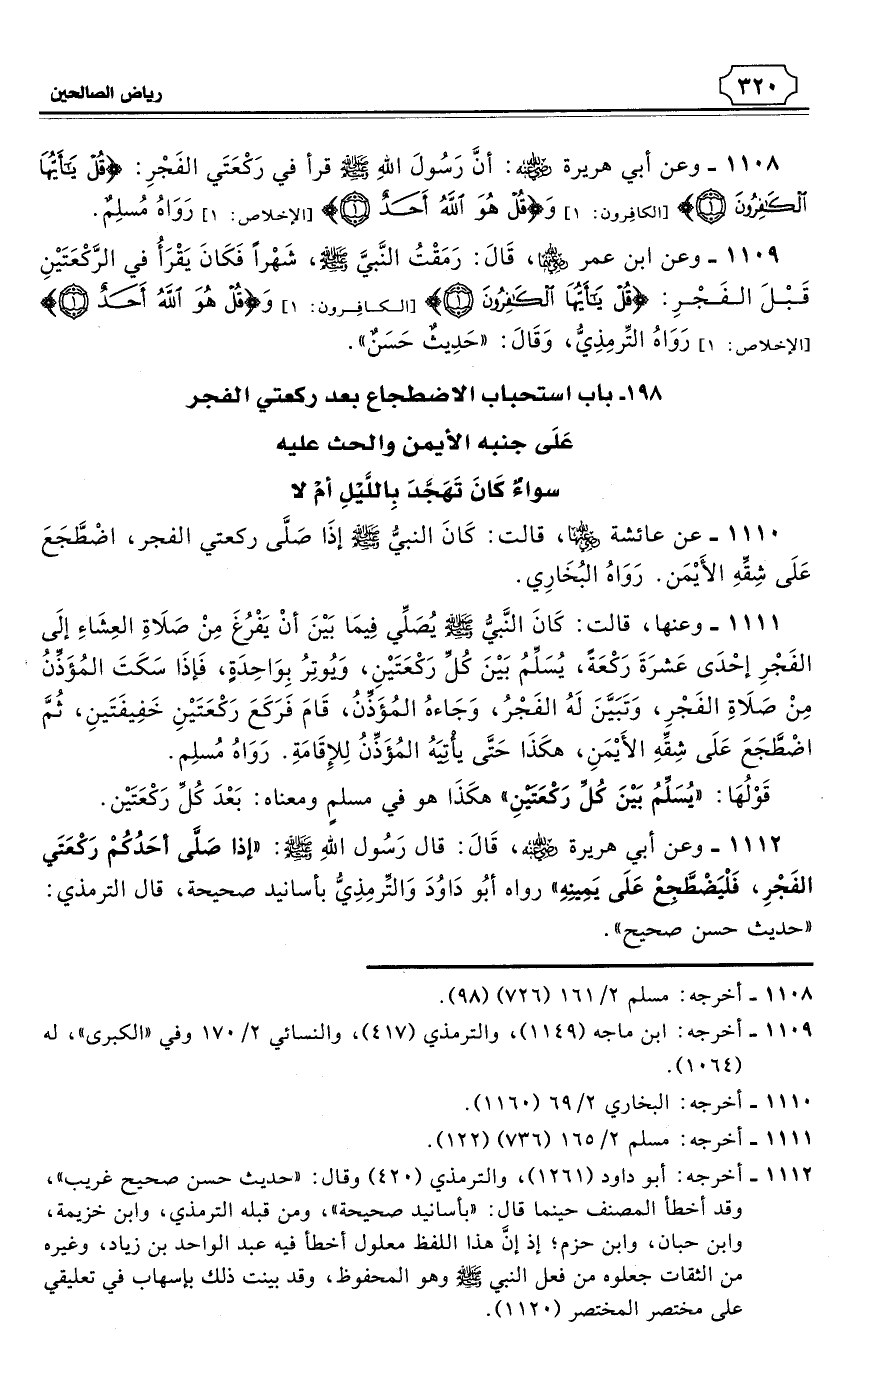 ٣٢٠
رياض الصالحين
١١٠٨ ـ وعن أبي هريرة رضي الله عنه: أنَّ رَسُولَ اللهِ ﷺ قرأ في رَكْعَتَي الفَجْرِ: ﴿قُلْ يَٰٓأَيُّهَا
ٱلْكَٰفِرُونَ ۝١﴾ [الكافرون: ١] وَ﴿قُلْ هُوَ ٱللَّهُ أَحَدٌ ۝١﴾ [الإخلاص: ١] رَوَاهُ مُسلِمٌ.
١١٠٩ ـ وعن ابن عمر رضي الله عنهما، قَالَ: رَمَقْتُ النَّبيَّ ﷺ، شَهْراً فَكَانَ يَقْرَأُ في الرَّكْعَتَيْنِ
قَبْلَ الفَجْرِ: ﴿قُلْ يَٰٓأَيُّهَا ٱلْكَٰفِرُونَ ۝١﴾ [الكافرون: ١] وَ﴿قُلْ هُوَ ٱللَّهُ أَحَدٌ ۝١﴾
[الإخلاص: ١] رَوَاهُ التِّرمِذِيُّ، وَقَالَ: «حَدِيثٌ حَسَنٌ».
١٩٨ـ باب استحباب الاضطجاع بعد ركعتي الفجر
عَلَى جنبه الأيمن والحث عليه
سواءٌ كَانَ تَهَجَّدَ بِاللَّيْلِ أمْ لا
١١١٠ ـ عن عائشة رضي الله عنها، قالت: كَانَ النبيُّ ﷺ إذَا صَلَّى ركعتي الفجر، اضْطَجَعَ
عَلَى شِقِّهِ الأَيْمَن. رَوَاهُ البُخَارِي.
١١١١ ـ وعنها، قالت: كَانَ النَّبيُّ ﷺ يُصَلِّي فِيمَا بَيْنَ أنْ يَفْرُغَ مِنْ صَلَاةِ العِشَاءِ إلَى
الفَجْرِ إحْدَى عَشرَةَ رَكْعَةً، يُسَلِّمُ بَيْنَ كُلِّ رَكْعَتَيْنِ، وَيُوتِرُ بِوَاحِدَةٍ، فَإذَا سَكَتَ المُؤَذِّنُ
مِنْ صَلَاةِ الفَجْرِ، وَتَبَيَّنَ لَهُ الفَجْرُ، وَجَاءهُ المُؤَذِّنُ، قَامَ فَرَكَعَ رَكْعَتَيْنِ خَفِيفَتَينِ، ثُمَّ
اضْطَجَعَ عَلَى شِقِّهِ الأَيْمَنِ، هكَذَا حَتَّى يأْتِيَهُ المُؤَذِّنُ لِلإِقَامَةِ. رَوَاهُ مُسلِم.
قَوْلُهَا: «يُسَلِّمُ بَيْنَ كُلِّ رَكْعَتَيْنِ» هكَذَا هو في مسلمٍ ومعناه: بَعْدَ كُلِّ رَكْعَتَيْن.
١١١٢ ـ وعن أبي هريرة رضي الله عنه، قَالَ: قال رَسُول اللهِ ﷺ: «إذا صَلَّى أحَدُكُمْ رَكْعَتَي
الفَجْرِ، فَلْيَضْطَّجِعْ عَلَى يَمِينِهِ» رواه أبُو دَاوُدَ وَالتِّرمِذِيُّ بأسانيد صحيحة، قال الترمذي:
«حديث حسن صحيح».
١١٠٨ ـ أخرجه: مسلم ٢/ ١٦١ (٧٢٦) (٩٨).
١١٠٩ ـ أخرجه: ابن ماجه (١١٤٩)، والترمذي (٤١٧)، والنسائي ٢/ ١٧٠ وفي «الكبرى»، له
(١٠٦٤).
١١١٠ ـ أخرجه: البخاري ٢/ ٦٩ (١١٦٠).
١١١١ ـ أخرجه: مسلم ٢/ ١٦٥ (٧٣٦) (١٢٢).
١١١٢ ـ أخرجه: أبو داود (١٢٦١)، والترمذي (٤٢٠) وقال: «حديث حسن صحيح غريب»،
وقد أخطأ المصنف حينما قال: «بأسانيد صحيحة»، ومن قبله الترمذي، وابن خزيمة،
وابن حبان، وابن حزم؛ إذ إنَّ هذا اللفظ معلول أخطأ فيه عبد الواحد بن زياد، وغيره
من الثقات جعلوه من فعل النبي ﷺ وهو المحفوظ، وقد بينت ذلك بإسهاب في تعليقي
على مختصر المختصر (١١٢٠).